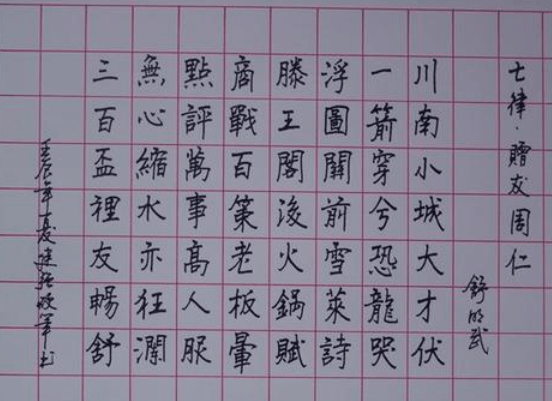 七律·贈友周仁
舒明武
川南小城大才伏
一箭穿兮恐龍哭
浮圖關前雪萊詩
滕王閣後火鍋賦
商戰百策老板暈
點評萬事高人服
無心縮水亦狂瀾
三百盃裡友暢舒
壬辰年夏